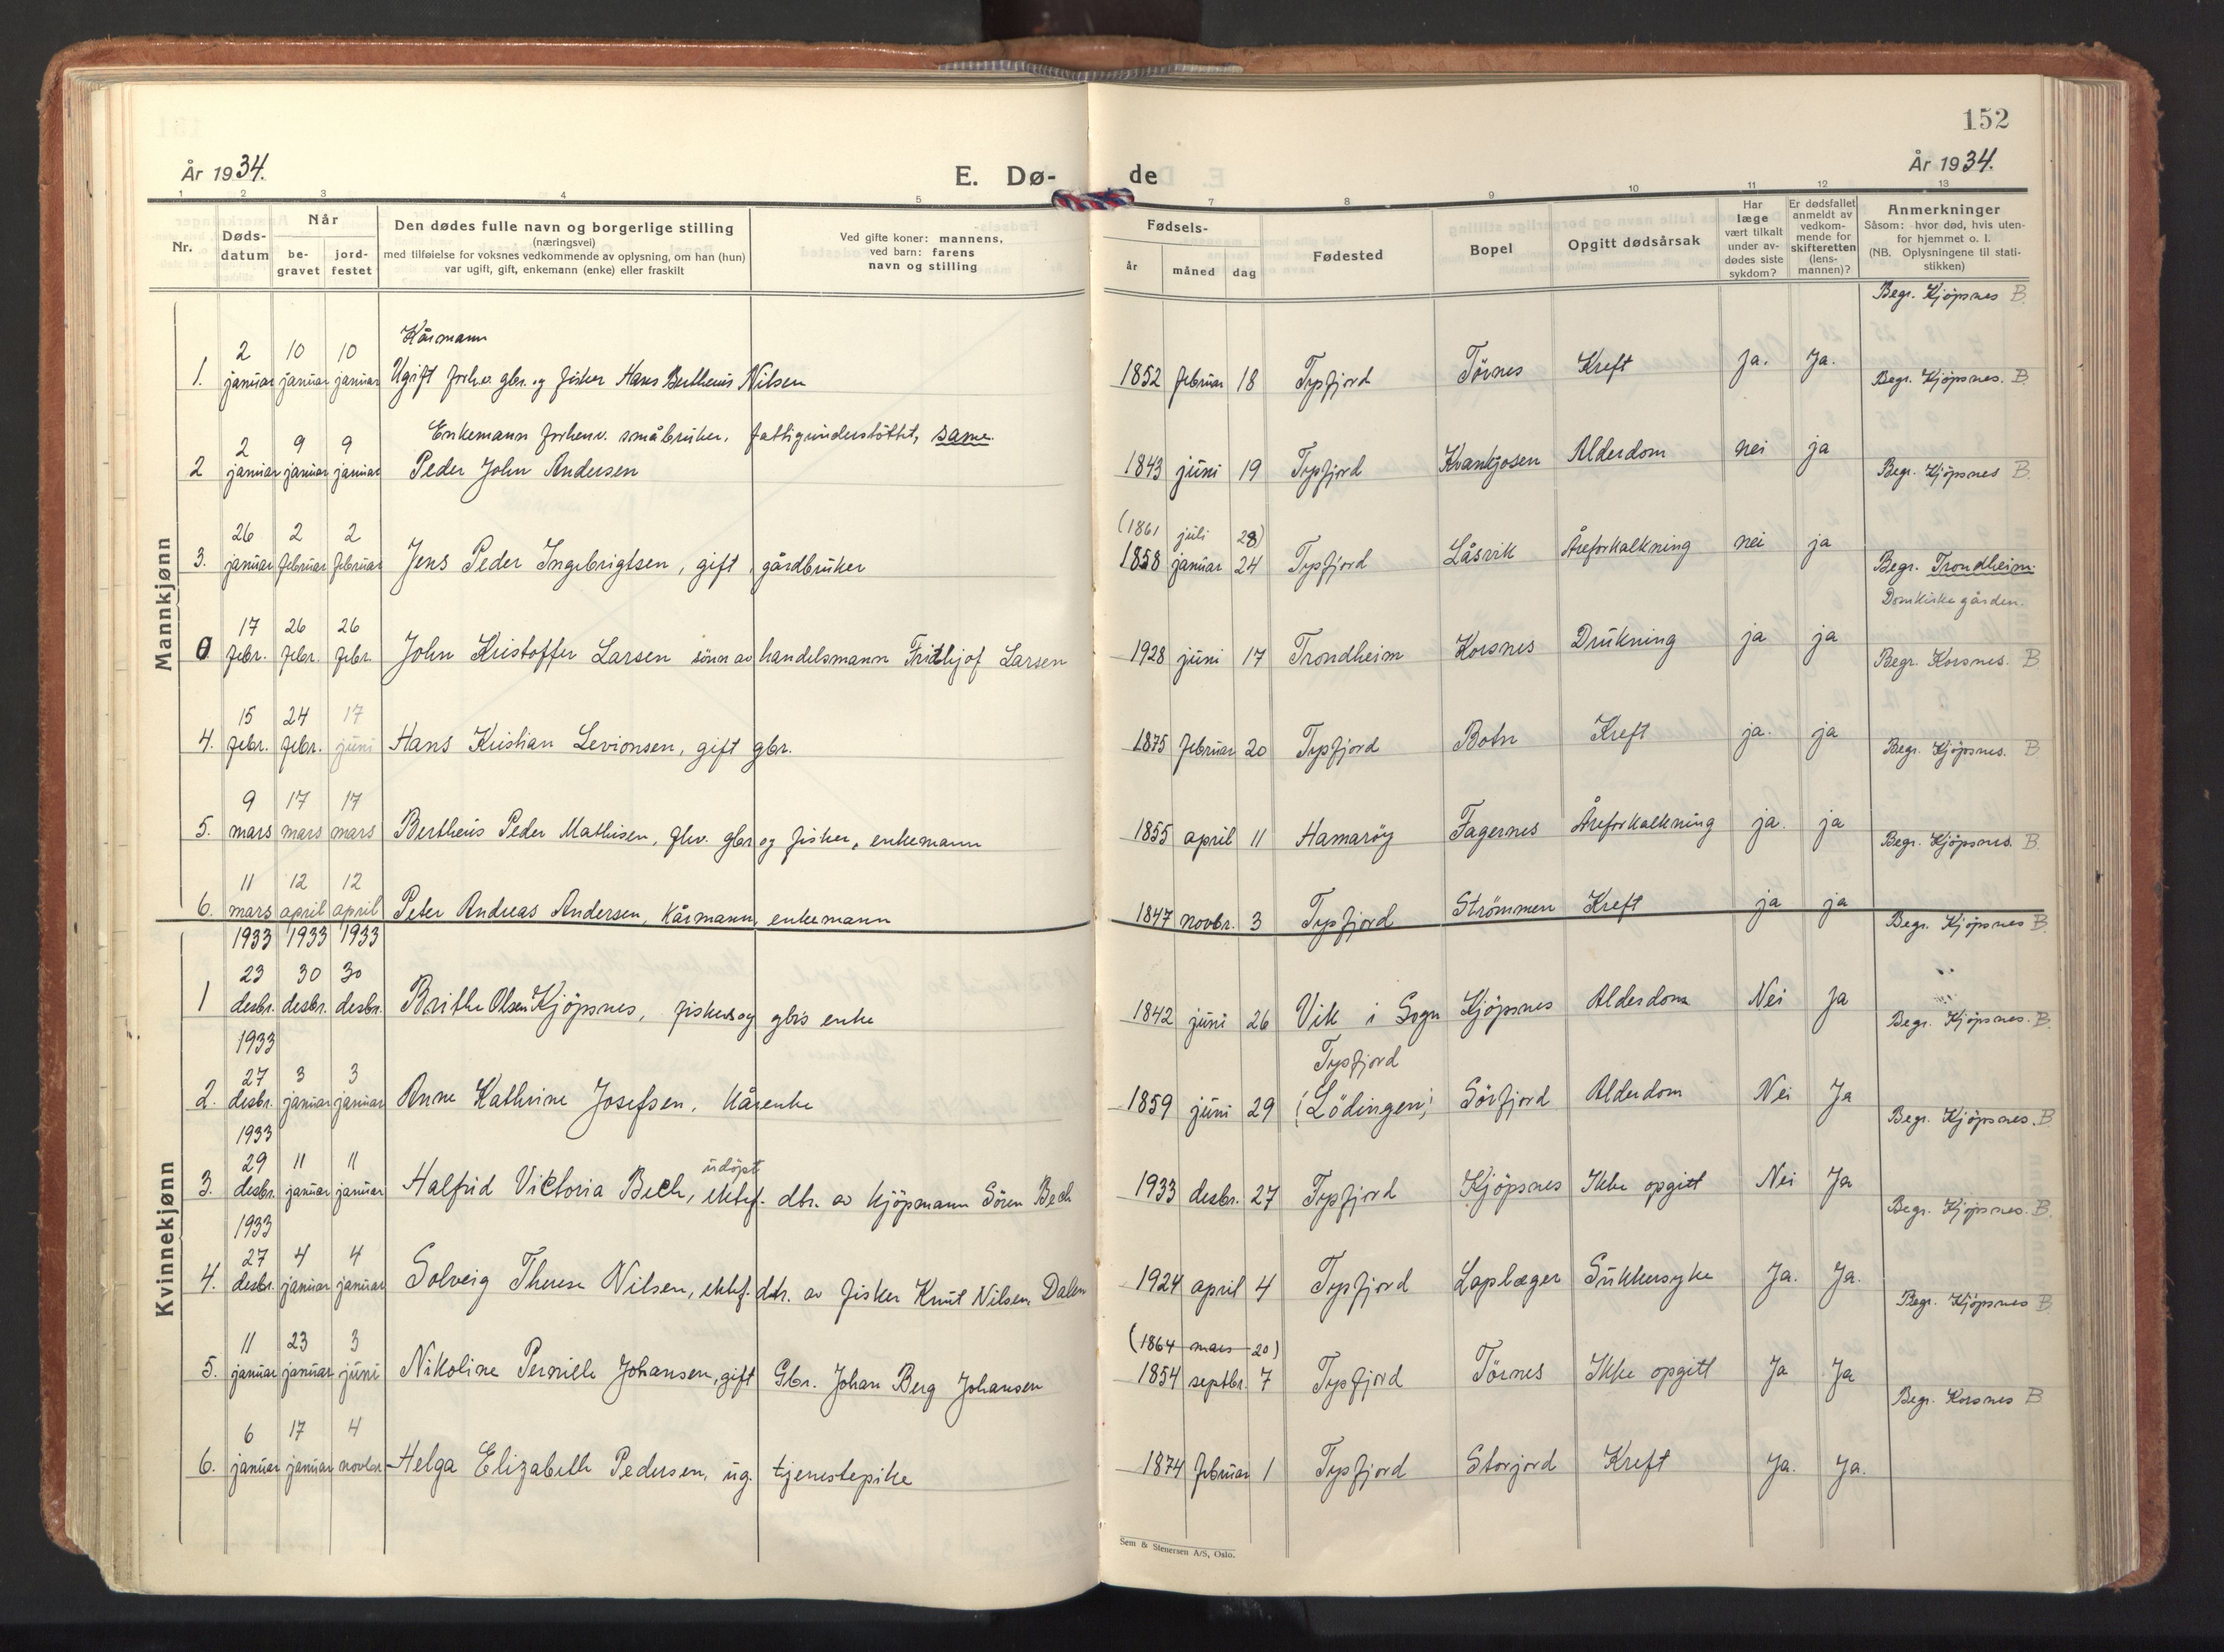 152
År 1934.
E. Dø-
de
År 1934.
1 2 3 4 5 7 8 9 10 11 12 13
Nr.
Døds-
datum
Når
be-
gravet
jord-
festet
Den dødes fulle navn og borgerlige stilling
(næringsvei)
med tilføielse for voksnes vedkommende av oplysning, om han (hun)
var ugift, gift, enkemann (enke) eller fraskilt
Ved gifte koner: mannens,
ved barn: farens
navn og stilling
Fødsels-
år måned dag
Fødested
Bopel
Opgitt dødsårsak
Har
læge
vært tilkalt
under av-
dødes siste
sykdom?
Er dødsfallet
anmeldt av
vedkom-
mende for
skifteretten
(lens-
mannen)?
Anmerkninger
Såsom: hvor død, hvis uten-
for hjemmet o. l.
(NB. Oplysningene til stati-
stikken)
Mannkjønn
Begr. Kjöpsnes B.
Kårmann
2 10 10
1. januar januar januar Ugift forh.v. gbr. og fisker Hans Bertheus Nilsen 1852 februar 18 Tysfjord Törnes Kreft Ja. Ja.
Begr. Kjöpsnes. B.
Enkemann forhenv. småbruker, fattigunderstöttet, same.
2 9 9
2 januar januar januar Peder John Andersen 1843 juni 19 Tysfjord Kvankjosen Alderdom nei ja
Begr. Kjöpsnes B.
26 2 2
(1861 juli 28)
3. januar februar februar Jens Peder Ingebrigtsen, gift, gårdbruker 1858 januar 24 Tysfjord Låsvik Åreforkalkning nei ja
Begr. Trondheim.
Domkirkegården.
17 26 26
0 febr. febr. febr. John Kristoffer Larsen sönn av handelsmann Fridthjof Larsen 1928 juni 17 Trondheim Korsnes Drukning ja ja
Begr. Korsnes. B
15 24 17
4. febr. febr. juni Hans Kristian Levionsen, gift gbr. 1875 februar 20 Tysfjord Botn Kreft ja. ja
Begr. Kjöpsnes. B
9 17 17
5. mars mars mars Bertheus Peder Mathisen, fhv. gbr. og fisker, enkemann 1855 april 11 Hamaröy Fagernes Åreforkalkning ja. ja
Begr. Kjöpsnes. B.
11 12 12
6. mars april april Peter Andreas Andersen, Kårmann, enkemann 1847 novbr. 3 Tysfjord Strömmen Kreft ja ja
Kvinnekjønn
Begr. Kjöpsnes B.
1933 1933 1933
23 30 30
1 desbr. desbr. desbr. Brithe Olsen Kjöpsnes, fisker og gbrs enke 1842 juni 26 Vik i Sogn Kjöpsnes Alderdom Nei Ja
Begr. Kjöpsnes. B.
1933
27 3 3
Tysfjord
2. desbr. januar januar Anne Kathrine Josefsen, kårenke 1859 juni 29 (Lödingen) Sörfjord Alderdom Nei Ja
Begr. Kjöpsnes. B
1933
29 11 11
udöpt
3. desbr. januar januar Halfrid Victoria Bech, ektef. dtr. av kjöpmann Sören Bech 1933 desbr. 27 Tysfjord Kjöpsnes Ikke opgitt Nei Ja
Begr. Kjöpsnes. B.
1933
27 4 4
4. desbr. januar januar Solveig Therese Nilsen, ektef. dtr. av fisker Knut Nilsen, Dalen 1924 april 4 Tysfjord Laplæger Sukkersyke Ja. Ja.
Begr. Kjöpsnes B
11 23 3
(1864 mars 20)
5. januar januar juni Nikoline Pernille Johansen, gift Gbr. Johan Berg Johansen 1854 septbr. 7 Tysfjord Törnes Ikke opgitt Ja Ja
Begr. Korsnes B
6 17 4
6. januar januar novber Helga Elizabeth Pedersen, ug. tjenestepike 1874 februar 1 Tysfjord Storjord Kreft Ja. Ja.
Sem & Stenersen A/S, Oslo.